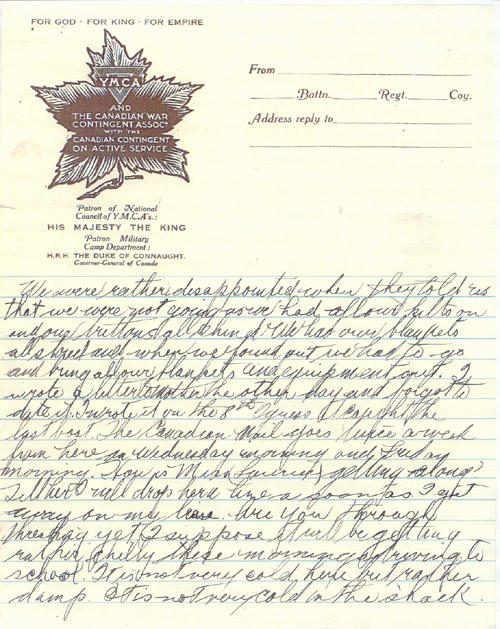 FOR GOD - FOR KING - FOR EMPIRE
YMCA
AND
THE CANADIAN WAR
CONTINGENT ASSOCN
WITH THE
CANADIAN CONTINGENT
ON ACTIVE SERVICE
Patron of National
Council of Y.M.C.A's.:
HIS MAJESTY THE KING
Patron Military
Camp Department:
H.R.H. THE DUKE OF CONNAUGHT.
Governor-General of Canada
From
Battn. Regt. Coy.
Address reply to
We were rather disappointed when they told us
that we were not going as we had all our kilts on
and our buttons all shined. We had our blankets
all and when we found out we had to go
and bring all our blankets and equipment out. I
wrote a letter to the other day and forgot to
date it. I wrote it on the 8th I guess it caught the
last boat. The Canadian Mail goes twice a week
from here on Wednesday morning and Friday
morning. How is Miss getting along?
Tell her I will drop her a line as soon as I get
away on my leave. Are you through
threshing yet. I suppose it will be getting
rather chilly these mornings driving to
school. It is not very cold here but rather
damp. It is not very cold in the shack.